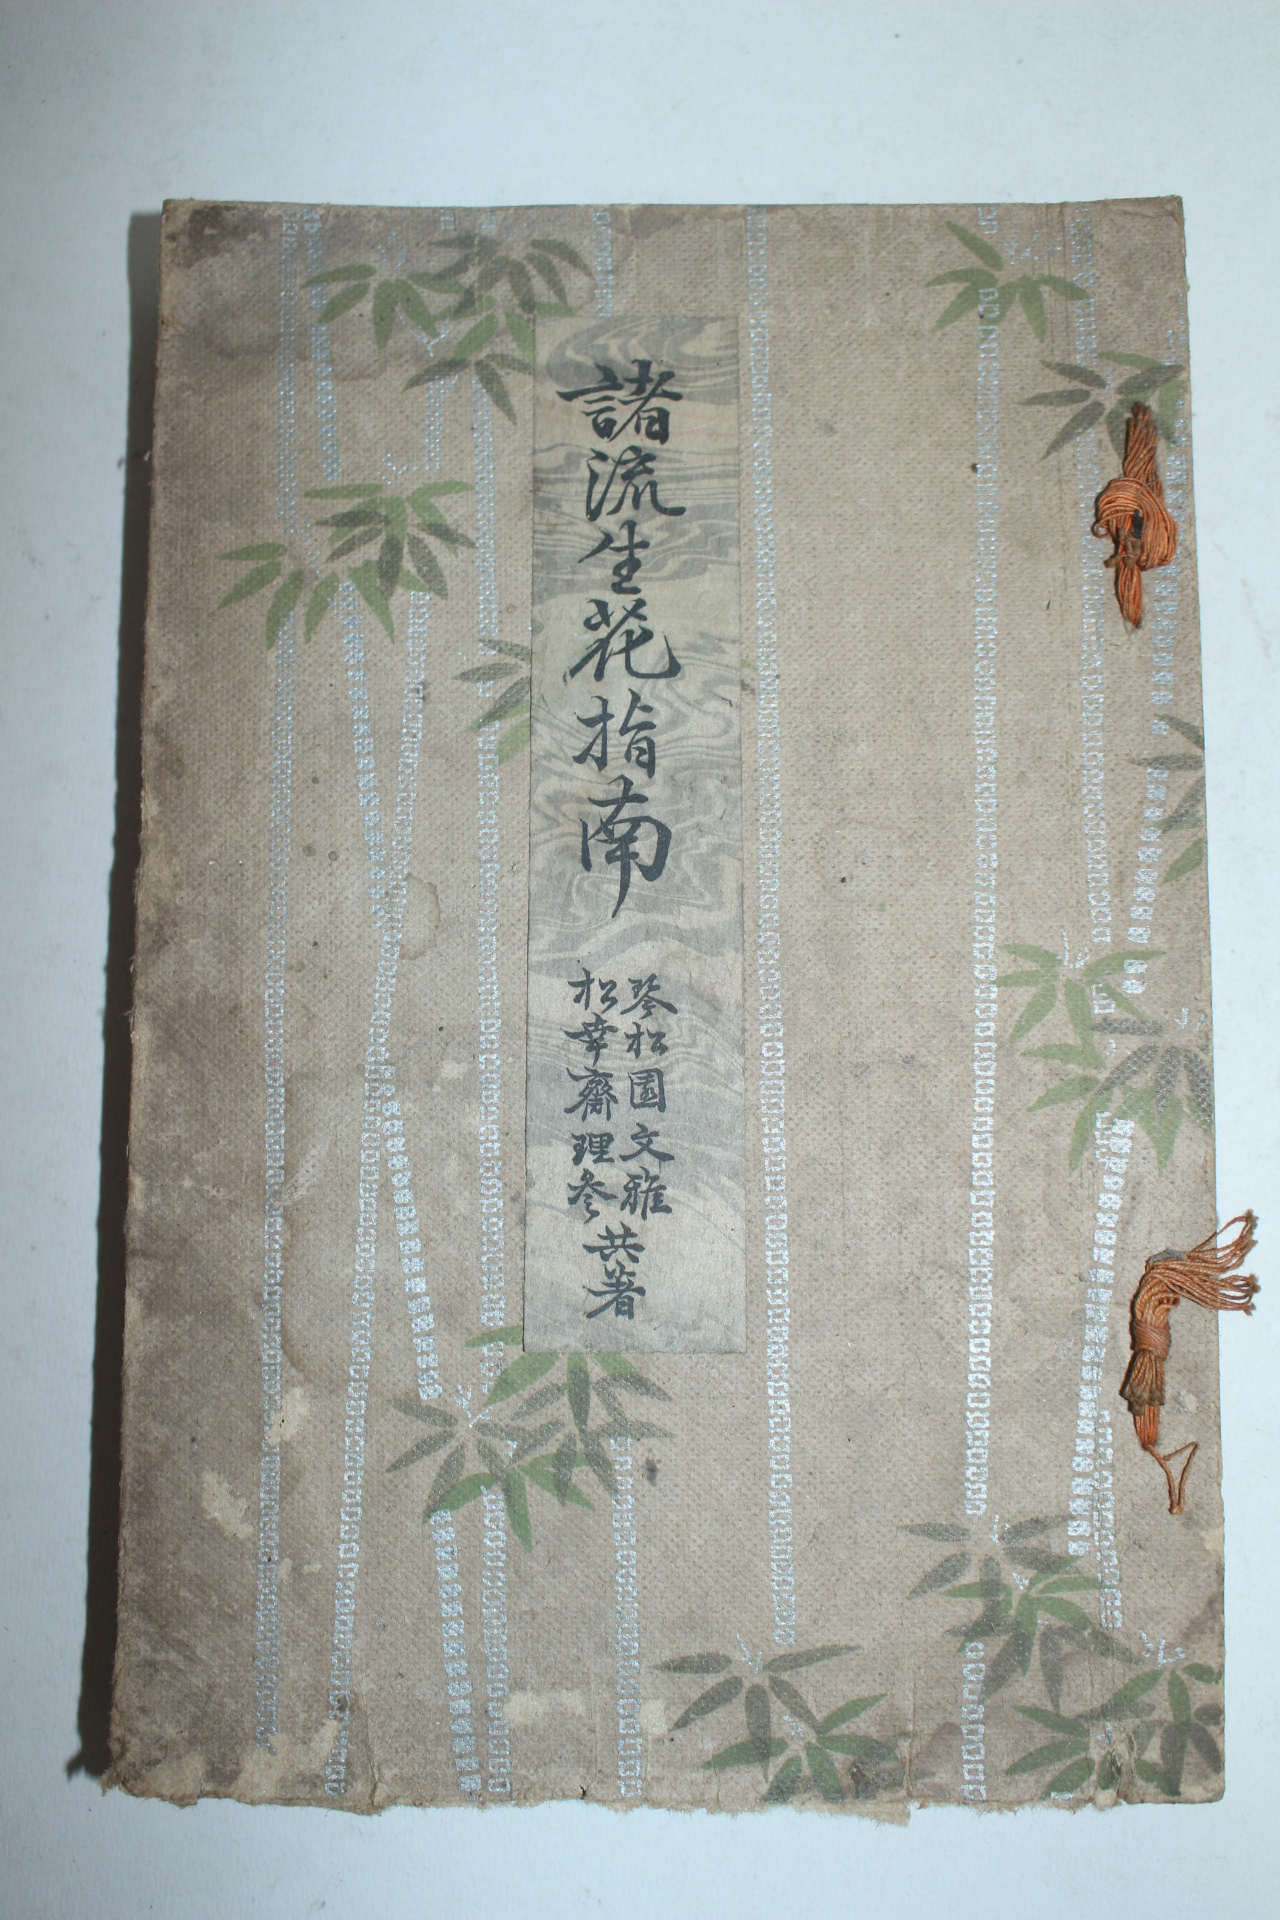 諸流生花指南
琴松園文雅
松幸齋理参
共著